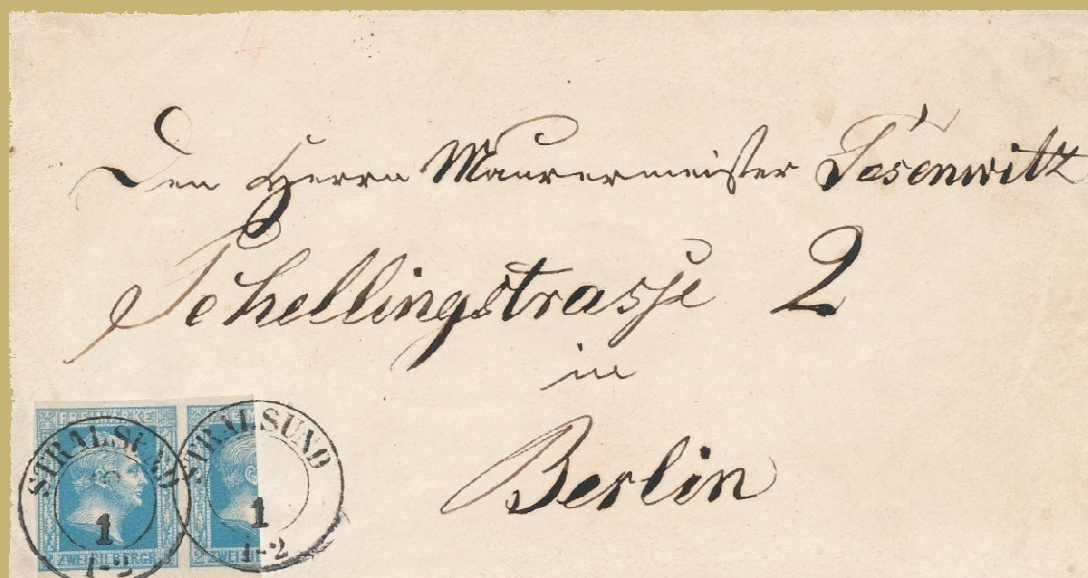 Den Herrn Maurermeister Tesenwitz
Schellingstrasse 2
in
Berlin
FREIMARKE
STRALSUND
1
1-2
ZWEI SILBERGR.
STRALSUND
1
1-2